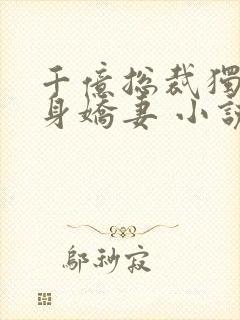 千億總裁獨
身嬌妻 小說
鄔秒寂